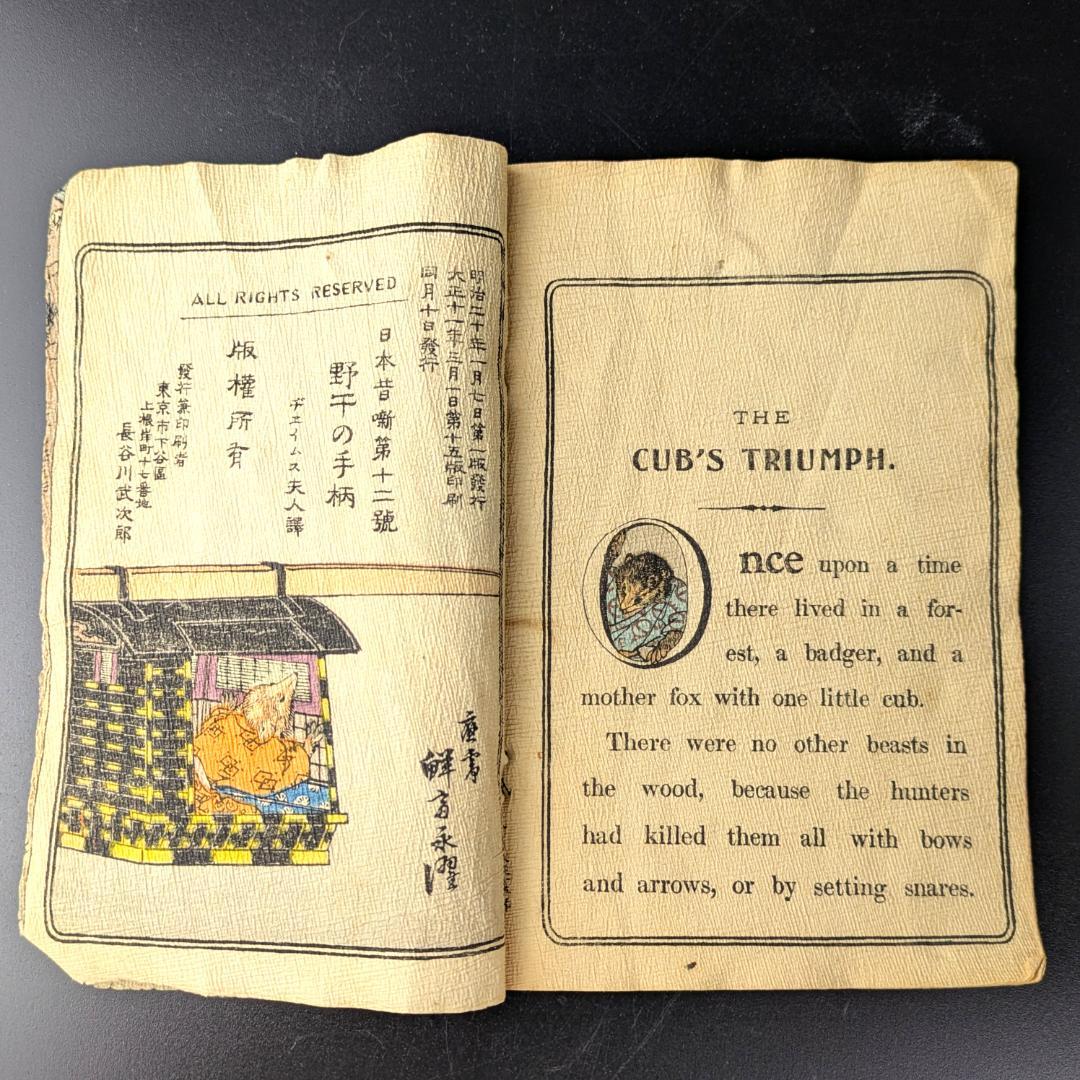 ALL RIGHTS RESERVED
明治二十年一月七日第一版發行
大正十一年三月一日第十五版印刷
同月十日發行
日本昔噺第十二號
野干の手柄
ヂェイムス夫人譯
版權所有
發行兼印刷者
東京市下谷區
上根岸町十七番地
長谷川武次郎
鮮斎永濯
THE
CUB'S TRIUMPH.
Once upon a time
there lived in a for-
est, a badger, and a
mother fox with one little cub.
There were no other beasts in
the wood, because the hunters
had killed them all with bows
and arrows, or by setting snares.